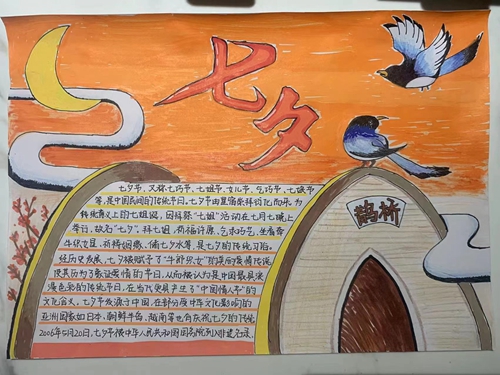 七夕
鹊桥
七夕节，又称七巧节、七姐节、女儿节、乞巧节、七娘节
等，是中国民间的传统节日。七夕节由星宿崇拜衍化而来，为
传统意义上的七姐诞，因拜祭“七姐”活动在七月七晚上
举行，故名“七夕”。拜七姐、祈福许愿、乞求巧艺、坐看牵
牛织女星、祈祷姻缘、储七夕水等，是七夕的传统习俗。
经历史发展，七夕被赋予了“牛郎织女”的美丽爱情传说，
使其成为了象征爱情的节日，从而被认为是中国最具浪
漫色彩的传统节日，在当代更是产生了“中国情人节”的
文化含义。七夕节发源于中国，在部分受中华文化影响的
亚洲国家如日本、朝鲜半岛、越南等也有庆祝七夕的传统。
2006年5月20日，七夕节被中华人民共和国国务院列入非遗名录。